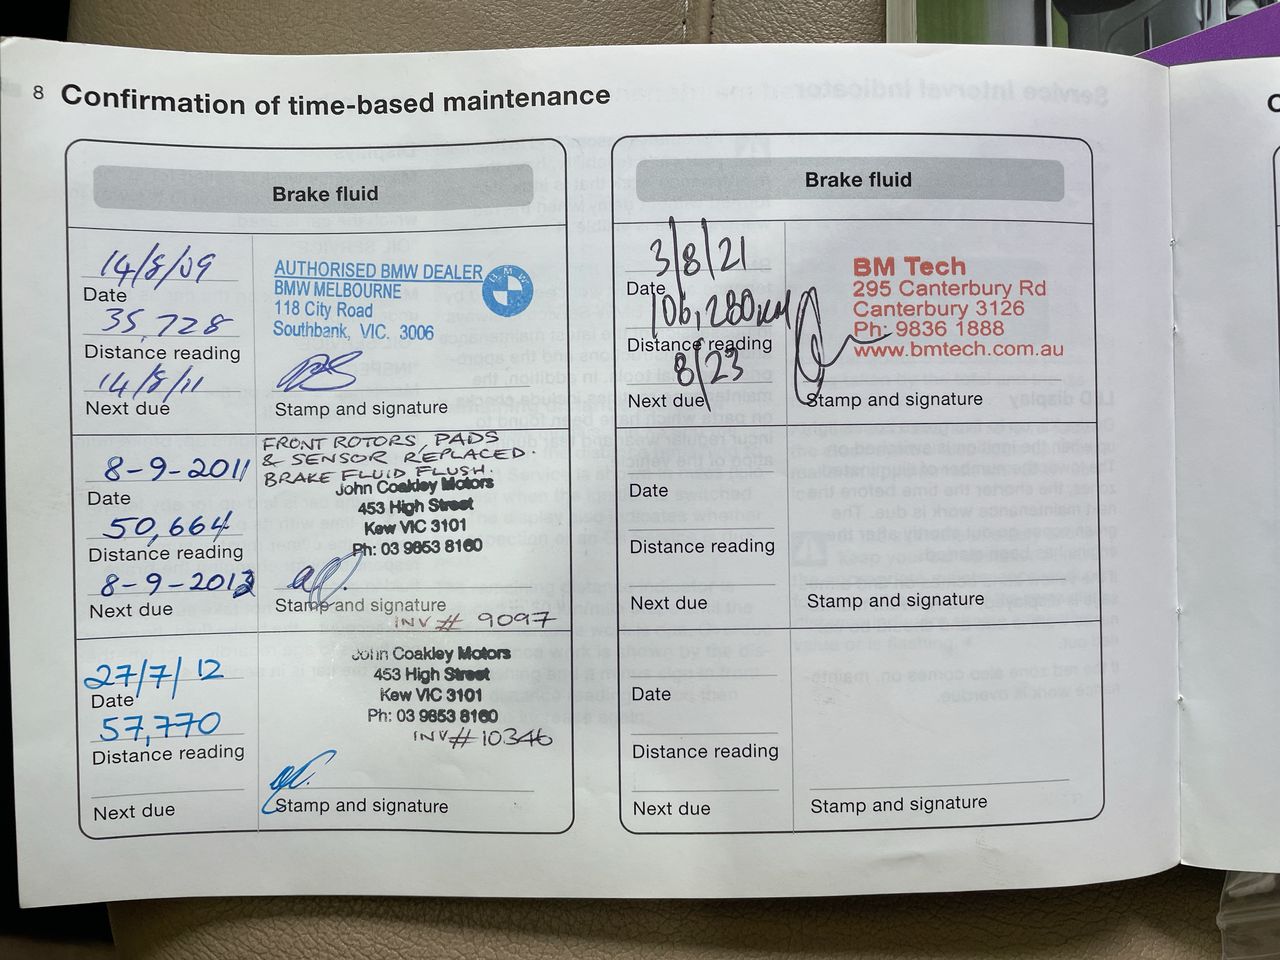 8 Confirmation of time-based maintenance
Brake fluid
14/8/09
Date
35,728
Distance reading
14/8/11
Next due
AUTHORISED BMW DEALER
BMW MELBOURNE
118 City Road
Southbank, VIC. 3006
BMW
Stamp and signature
8-9-2011
Date
50,664
Distance reading
8-9-2013
Next due
FRONT ROTORS, PADS
& SENSOR REPLACED.
BRAKE FLUID FLUSH.
John Coakley Motors
453 High Street
Kew VIC 3101
Ph: 03 9853 8160
Stamp and signature
INV# 9097
27/7/12
Date
57,770
Distance reading
Next due
John Coakley Motors
453 High Street
Kew VIC 3101
Ph: 03 9853 8160
INV# 10346
Stamp and signature
Brake fluid
3/8/21
Date
106,280KM
Distance reading
8/23
Next due
BM Tech
295 Canterbury Rd
Canterbury 3126
Ph: 9836 1888
www.bmtech.com.au
Stamp and signature
Date
Distance reading
Next due
Stamp and signature
Date
Distance reading
Next due
Stamp and signature